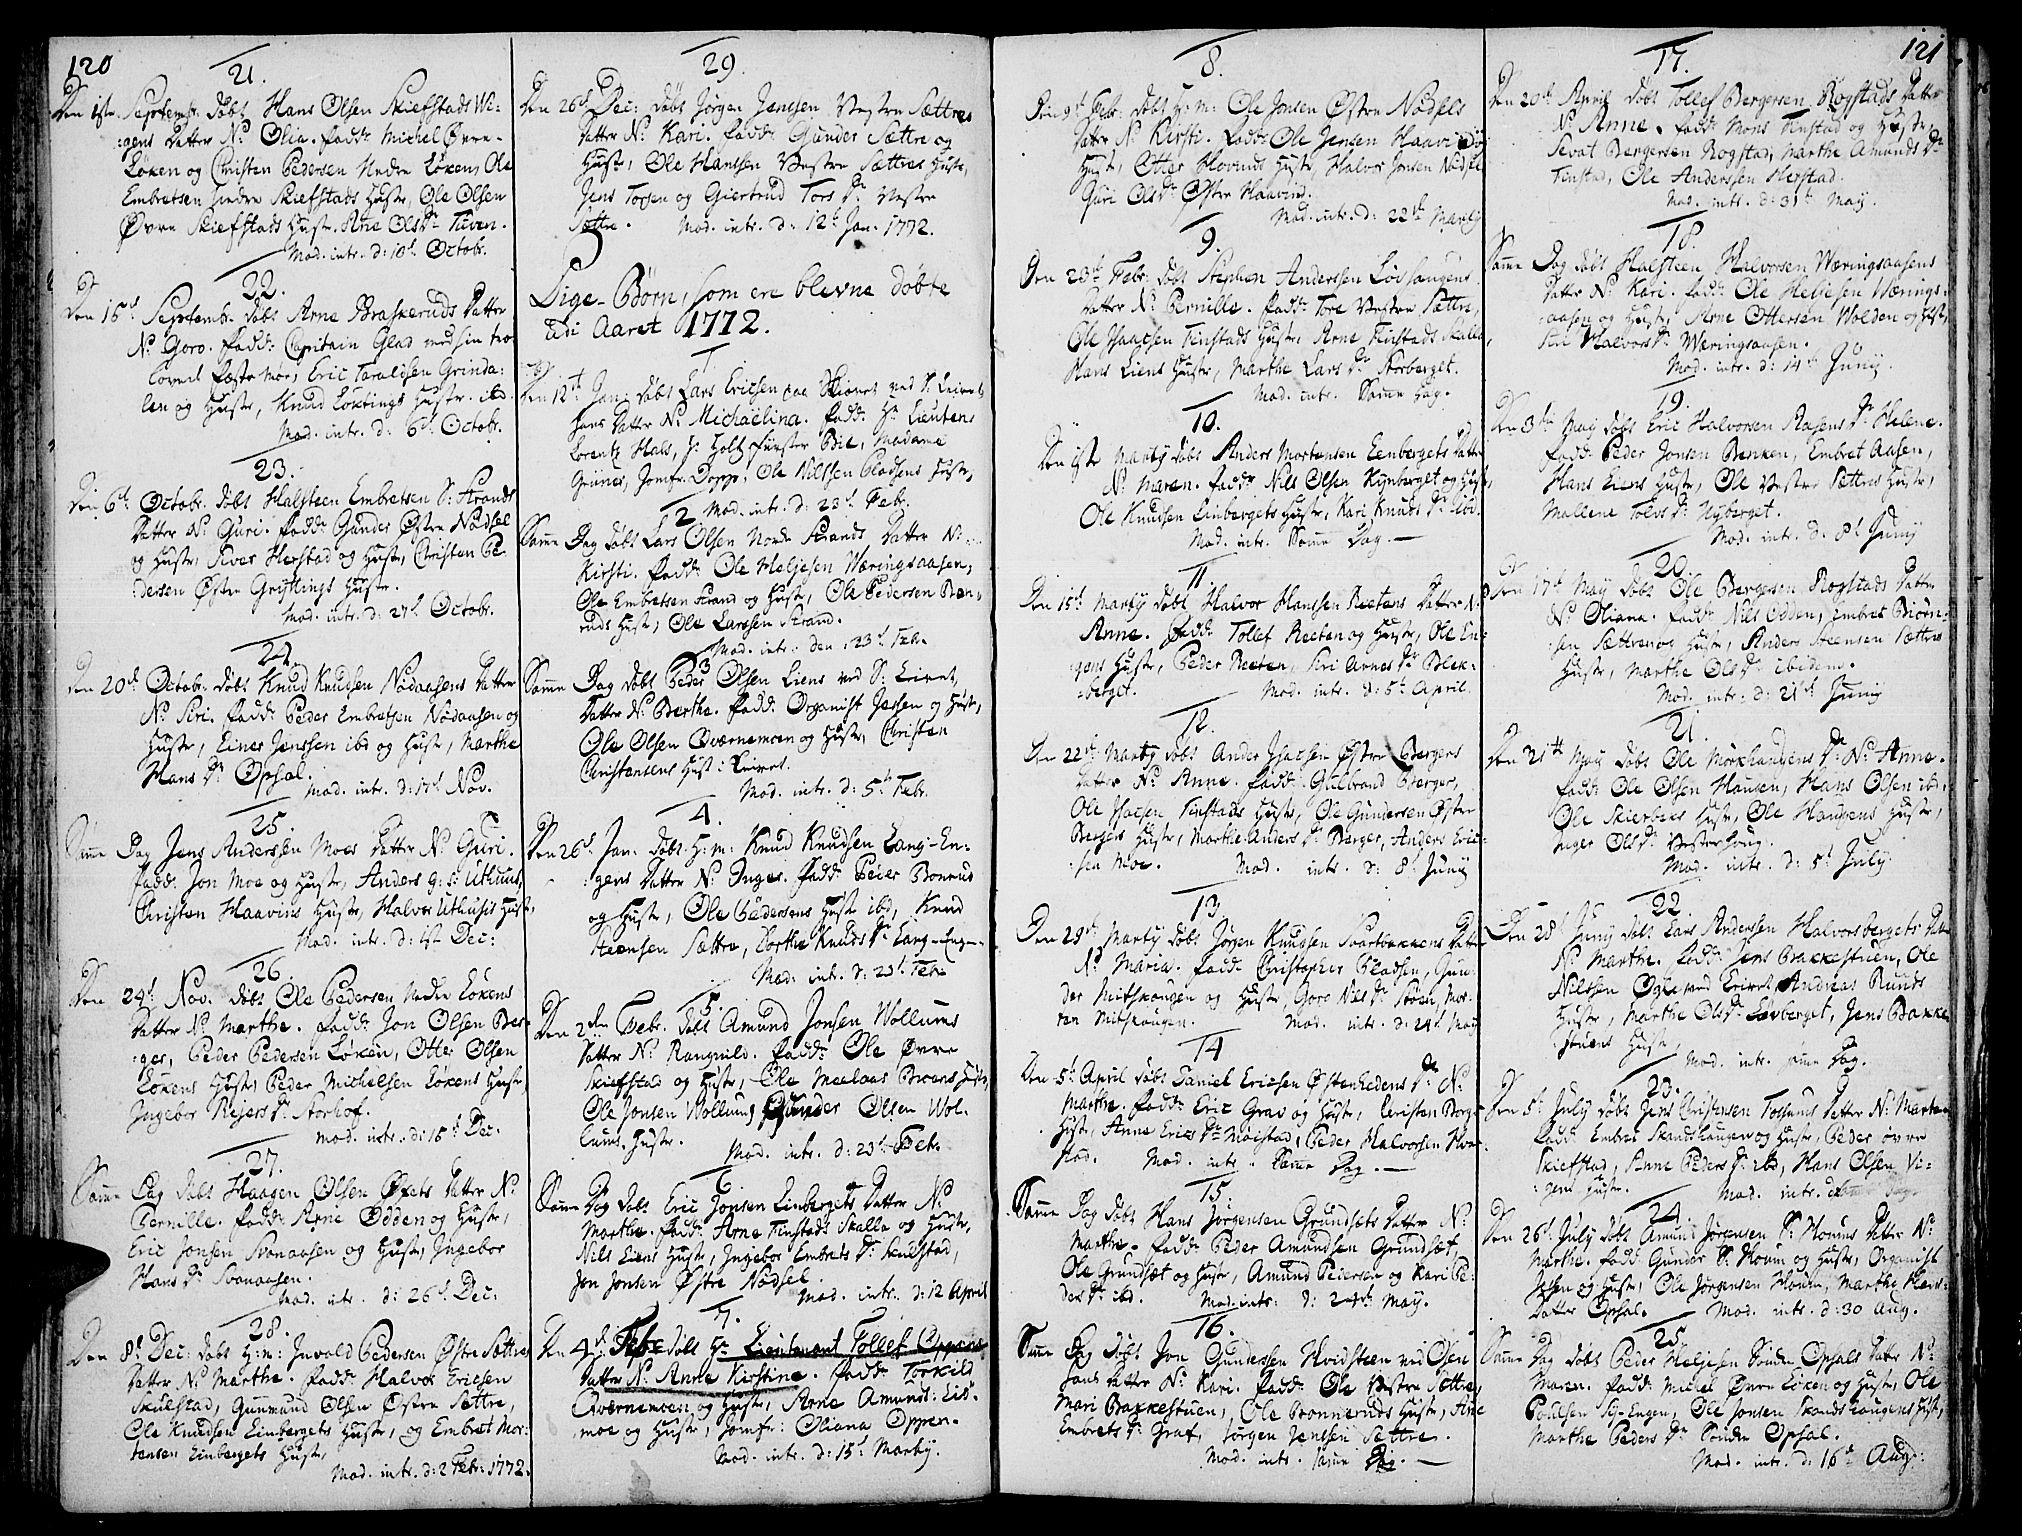 120
21.
Den 1ste Septembr. døbt Hans Olsen Skiefstads Vi-
gens Datter N: Olia. fadd: Michel Øvre-
Løken og Christen Pedersen Nedre Løken, Ole
Embretsen Nedre Skiefstads Hustr, Ole Olsen
Øvre Skiefstads Hustr. Ane Olsdr Tuven.
Mod. intr. d: 10t Octobr.
22.
Den 15de Septembr. døbt Arne Braskeruds Datter
N: Goro. fadd: Capitain Glad med sin tro-
lovede fæste Moe, Eric Taraldsen Grinda-
len og Hustr, Knud Løktings Hustr. ibd.
Mod. intr. d: 6t Octobr.
23.
Den 6t Octobr. døbt Halsteen Embretsen S: Strands
Datter N: Guri. fadd: Gunder Østre Nødsel
og Hustr, Siver Herstad og Hustr, Christen Pe-
dersen Østre Grythings Hustr.
Mod. intr. d: 27t Octobr.
24.
Den 20de Octobr. døbt Knud Knudsen Nødaasens Datter
N: Siri. fadd: Peder Embretsen Nødaasen og
Hustr, Einer Jenssen ibd og Hustr, Marthe
Hansdr Opsal.
Mod. intr. d: 17t Nov.
25.
Samme Dag Jens Anderssen Moes Datter N: Guri.
fadd: Jon Moe og Hustr, Anders g: s: Uthuus,
Christen Haavins Hustr, Halvor Uthusis Hustr,
Mod. intr. d: 1st Dec:
26.
Den 24t Nov. døbt Ole Pedersen Nedre Løkens
Datter N: Marthe. fadd: Jon Olsen Ber-
ger, Peder Pedersen Løken, Otter Olsen
Løkens Hustr, Peder Michelsen Løkens Hustr,
Ingebor Rejersdr Storhof.
Mod. intr. d: 15t Dec:
27.
Samme Dag døbt Haagen Olsen Øfets Datter N:
Pernille. fadd: Arne Odden og Hustr,
Eric Jonsen Svenaasen og Hustr, Ingebor
Hansdr Svenaasen.
Mod. intr. d: 26t Dec:
28.
Den 8t Dec: døbt H:m: Invald Pedersen Østre Sættre
Datter N: Marthe. fadd: Halvor Ericsen
Skulstad, Gunmund Olsen Østre Sættre,
Ole Knudsen Einbergets Hustr, og Embret Mor-
tensen Einbergets Hustr,
Mod. intr. d: 2 Febr: 1772.
29.
Den 26de Dec: døbt Jørgen Jenssen Vestre Sættres
Datter N: Kari. fadd: Gunder Sættre og
Hustr, Ole Hanssen Vestre Sættres Hustr,
Jens Torsen og Giertrud Torsdr Vestre
Sættre. Mod. intr. d: 12t Jan. 1772.
Pige-Børn, som ere blevne døbte
udi Aaret 1772.
1
Den 12t Jan. døbt Lars Ericsen paa Skioret ved S: Leiret
hans Datter N: Michaelina. fadd: Hr Lieutens
Lorentz Hals, Hr Holtfurster Bie, Madame
Grünes, Jomfr. Dopp, Ole Nilssen Pladsens Hustr,
Mod. intr. d: 23t Febr.
2
Samme Dag døbt Lars Olsen Nordr Strands Datter N:
Kirsti. fadd: Ole Meljesen Wæringsaasen,
Ole Embretsen Strand og Hustr, Ole Pedersen Bæn-
ruds Hustr, Ole Larssen Strand.
Mod. intr. den 23t Febr.
3
Samme Dag døbt Peder Olsen Liens ved S: Leiret,
Datter N: Berthe. fadd: Organist Jessen og Hustr,
Ole Olsen Qværnemoen og Hustr, Christen
Christensens Hust: Leiret.
Mod. intr. d: 5t Febr.
4.
Den 26t Jan. døbt H:m: Knud Knudsen Lang-En-
gens Datter N: Inger. fadd: Peder Bonrud
og Hustr, Ole Pedersens Hustr ibd, Knud
Steensen Sættre, Dorthe Knudsdr Lang-Eng-
Mod. intr. d: 23t Febr
5.
Den 2den Febr. døbt Amund Jonsen Wollums
Datter N: Rangnild. fadd: Ole Øvre
Skiefstad og Hustr, Ole Meelaas Broens Hustr,
Ole Jonsen Wollum, Gunder Olsen Wol-
lums Hustr.
Mod. intr. d: 23t Febr.
6
Samme Dag døbt Eric Jonsen Einbergets Datter N:
Marthe. fadd: Arne Finstads Skalla og Hustr,
Nils Liens Hustr, Ingebor Embretsdr Skulstad,
Jon Jonsen Østre Nødsel.
Mod. intr: d: 12 April
7.
Den 4de Febr døbt Hr Lieutenant Tollef Oppens
Datter N: Anne Kirstine. fadd: Torkild
Qværnemoen og Hustr, Arne Amunds: Eis-
moe og Hustr, Jomfr: Oliana Oppen.
Mod. intr. d: 15t Martij.
8.
Den 9t Febr: døbt H:m: Ole Jonsen Østre Nødsels
Datter N: Kersti. fadd: Ole Jensen Haavi
Hustr, Otter Hovinds Hustr, Halvor Jonsen Nødsel
Guri Olsdr Østre Haavind.
Mod. intr. d: 22de Martij
9.
Den 23de Febr: døbt Stephen Anderssen Løishaugens
Datter N: Pernille. fadd: Tore Vestre Sættre,
Ole Isacsen Finstads Hustr, Arne Finstads Skalla,
Hans Liens Hustr, Marthe Larsdr Storberget.
Mod. intr. Samme Dag.
10.
Den 1ste Martij døbt Anders Mortensen Eenbergets Datter
N: Maren. fadd: Nils Olsen Kynberget og Hustr,
Ole Knudsen Einbergets Hustr, Kari Knudsdr ibd.
Mod. intr. Samme Dag.
11
Den 15t Martij døbt Halvor Hanssen Reetens Datter N:
Anne. fadd: Tollef Reeten og Hustr, Ole En-
gens Hustr, Peder Reeten, Siri Arnesdr Blek-
berget. Mod. intr. d: 5t April.
12.
Den 22de Martij døbt Ander Isacsen Østre Bergers
Datter N: Anne. fadd: Gulbrand Berger,
Ole Isacsen Finstads Hustr, Ole Gundersen Østre
Bergers Hustr, Marthe Andersdr Berger, Anders Eric-
sen Moe. Mod. intr. d: 8t Junij
13
Den 29de Martij døbt Jørgen Knudsen Svartbakkens Datter
N: Maria. fadd: Christopher Pladsen, Gun-
der Mitskougen og Hustr, Goro Nilsdr Støen, Mor-
ten Mitskougen. Mod. intr. d: 24t May
14
Den 5t April døbt Daniel Ericsen Østenhedens Dr N:
Marthe. fadd: Eric Grav og Hustr, Christen Borg-
Hustr, Anne Ericsdr Møistad, Peder Halvorsen Hvar-
stad. Mod. intr. Samme Dag.
15.
Samme Dag døbt Hans Jørgensen Grundsets Datter N:
Marthe. fadd: Peder Amundsen Grundsæt,
Ole Grundsæt og Hustr, Amund Pedersen og Kari Pe-
dersdr ibd. Mod. intr: d: 24de May.
16.
Samme Dag døbt Jon Gundersen Hvidsteen ved Osen
hans Datter N: Kari. fadd: Ole Vestre Sættre,
Mari Bakkestuen, Ole Bronneruds Hustr, Ane
Embretsdr Graf, Jørgen Jenssen Sættre.
Mod. intr. samme Dag.
121
17.
Den 20de April døbt Tollef Bergersen Rogstads Datter
N: Anne. fadd: Mons Finstad og Hustr,
Sevat Bergersen Rogstad, Marthe Amundsdr
Finstad, Ole Anderssen Herstad.
Mod. intr. d: 31t May.
18.
Samme Dag døbt Halsteen Halvorsen Wæringsaasens
Datter N: Kari. fadd: Ole Meljesen Wærings-
aasen og Hustr, Arne Ottersen Wolden og Hustr,
Siri Halvorsdr Wæringsaasen.
Mod. intr. d: 14de Junij.
19.
Den 3de May døbt Eric Halvorsen Aasens Dr Helene.
fadd: Peder Jonsen Benken, Embret Aasen,
Hans Liens Hustr, Ole Vestre Sættres Hustr,
Mallene Tolvsdr Nyberget.
Mod. intr. d: 8t Junij
20.
Den 17de May døbt Ole Bergersen Rogstads Datter
N: Oliana. fadd: Nils Odden, Embret Biørn-
sen Sættre og Hustr, Anders Steensen Sættres
Hustr, Marthe Olsdr ibidem.
Mod. intr. d: 21t Junij
21.
Den 21de May døbt Ole Mørkhaugens Dr N: Anne.
fadd: Ole Olsen Hausen, Hans Olsen ibd,
Ole Skierbeks Hustr, Ole Haugens Hustr,
Inger Olsdr Vesterhoug.
Mod. intr. d: 5t July.
22
Den 28t Junij døbt Lars Andersen Halvorsbergets Datter
N: Marthe. fadd: Jens Bakkestuen, Ole
Nilssen Ogle ved Leiret, Andreas Runds
Hustr, Marthe Olsdr Løvberget, Jens Bakke-
stuens Hustr,
Mod. intr. samme Dag.
23.
Den 5t July døbt Jens Christensen Tossens Datter N: Marthe
fadd: Embret Skandshaugen og Hustr, Peder Øvre
Skiefstad, Anne Pedersdr ibd, Hans Olsen Vi-
gens Hustr. Mod. intr. Samme Dag.
24
Den 26t July døbt Amund Jørgensen S: Moums Datter N:
Marthe. fadd: Gunder S: Moum og Hustr, Organist
Jessen og Hustr, Ole Jørgensen Moum, Marthe Hans-
Datter Opsal. Mod. intr. d: 30 Aug.
25.
Samme Dag døbt Peder Meljesen Søndre Opsals Datter N:
Maren. fadd: Michel Øvre Løken og Hustr, Ole
Poulsen Sø-Engen, Ole Jonsen Skandshaugens Hustr,
Marthe Pedersdr Søndre Opsal.
Mod. intr. d: 16de Aug: